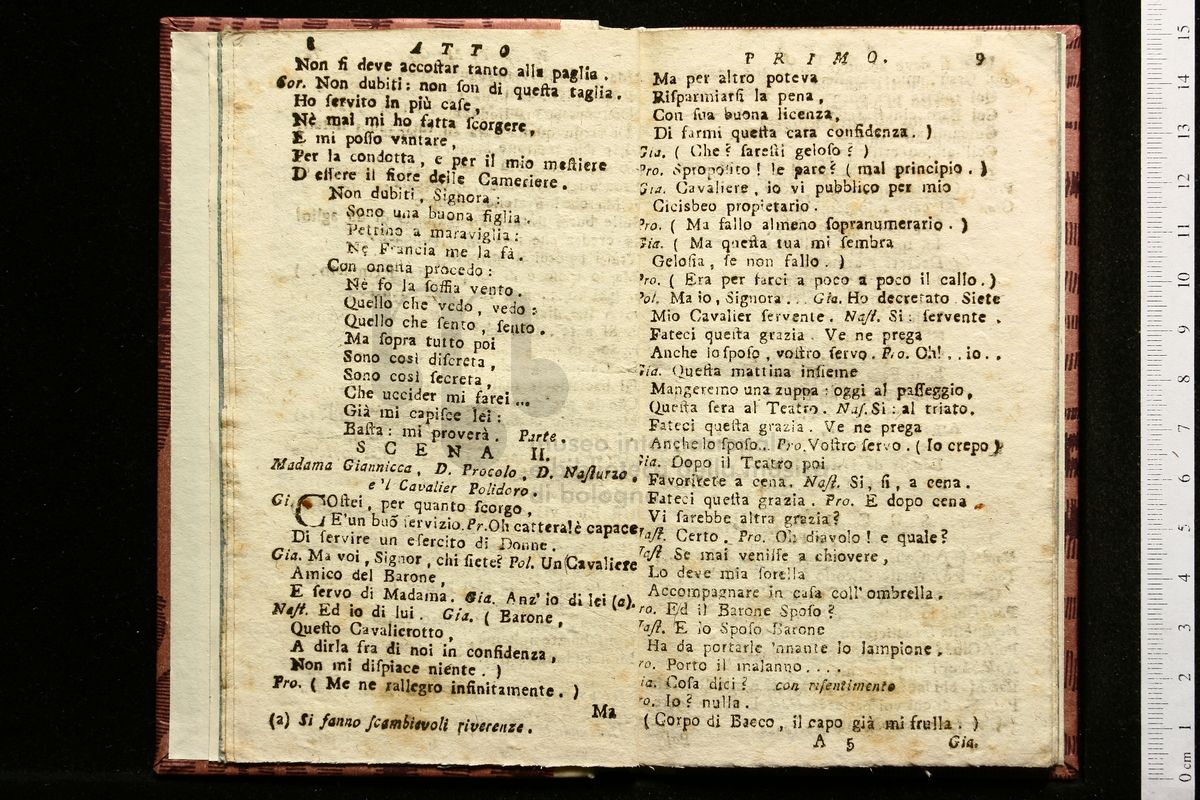 8 ATTO
Non ſi deve accoſtar tanto alla paglia.
Cor. Non dubiti: non ſon di queſta taglia.
Ho ſervito in più caſe,
Nè mai mi ho fatta ſcorgere,
E mi poſſo vantare,
Per la condotta, e per il mio meſtiere
D'eſſere il fiore delle Cameriere.
Non dubiti, Signora:
Sono una buona figlia.
Pettino a maraviglia:
Nè Francia me la fà.
Con oneſta procedo:
Nè fo la ſoffia vento.
Quello che vedo, vedo:
Quello che ſento, ſento.
Ma ſopra tutto poi
Sono così diſcreta,
Sono così ſecreta,
Che uccider mi farei ...
Già mi capiſce lei:
Baſta: mi proverà. Parte.
SCENA II.
Madama Giannicca, D. Procolo, D. Naſturzo,
e 'l Cavalier Polidoro.
Gi. COſtei, per quanto ſcorgo,
E'un buõ ſervizio. Pr. Oh catteral è capace
Di ſervire un eſercito di Donne.
Gia. Ma voi, Signor, chi ſiete? Pol. Un Cavaliere
Amico del Barone,
E ſervo di Madama. Gia. Anz' io di lei (a).
Naſt. Ed io di lui. Gia. ( Barone,
Queſto Cavalierotto,
A dirla fra di noi in confidenza,
Non mi diſpiace niente. )
Pro. ( Me ne rallegro infinitamente. )
Ma
(a) Si fanno ſcambievoli riverenze.
PRIMO. 9
Ma per altro poteva
Riſparmiarſi la pena,
Con ſua buona licenza,
Di farmi queſta cara confidenza. )
Gia. ( Che? ſareſti geloſo? )
Pro. Spropoſito! le pare? ( mal principio. )
Gia. Cavaliere, io vi pubblico per mio
Cicisbeo propietario.
Pro. ( Ma fallo almeno ſopranumerario. )
Gia. ( Ma queſta tua mi ſembra
Geloſia, ſe non fallo. )
Pro. ( Era per farci a poco a poco il callo. )
Pol. Ma io, Signora... Gia. Ho decretato. Siete
Mio Cavalier ſervente. Naſt. Sì: ſervente.
Fateci queſta grazia. Ve ne prega
Anche lo ſpoſo, voſtro ſervo. Pro. Oh!.. io..
Gia. Queſta mattina inſieme
Mangeremo una zuppa: oggi al paſſeggio,
Queſta ſera al Teatro. Naſ. Si: al triato.
Fateci queſta grazia. Ve ne prega
Anche lo ſpoſo... Pro. Voſtro ſervo. ( Io crepo )
Gia. Dopo il Teatro poi
Favorirete a cena. Naſt. Si, ſi, a cena.
Fateci queſta grazia. Pro. E dopo cena
Vi ſarebbe altra grazia?
Naſt. Certo. Pro. Oh diavolo! e quale?
Naſt. Se mai veniſſe a chiovere,
Lo deve mia ſorella
Accompagnare in caſa coll' ombrella.
Pro. Ed il Barone Spoſo?
Naſt. E lo Spoſo Barone
Ha da portarle 'nnante lo lampione.
Pro. Porto il malanno....
Gia. Coſa dici? con riſentimento
Pro. Io? nulla.
( Corpo di Bacco, il capo già mi frulla. )
A 5 Gia.